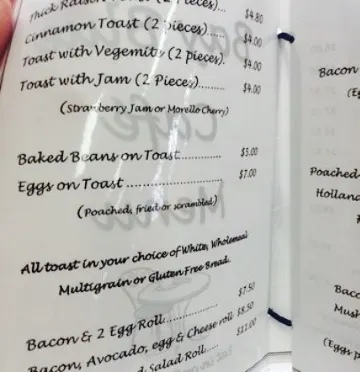 Thick Raisin
(2 pieces)... $4.80
Cinnamon Toast (2 pieces)... $4.00
Toast with Vegemite (2 pieces). $4.00
Toast with Jam (2 Pieces)......... $4.00
(Strawberry Jam or Morello Cherry)
Baked Beans on Toast............ $5.00
Eggs on Toast ........................ $7.00
(Poached, fried or scrambled)
All toast in your choice of White, Wholemeal
Multigrain or Gluten Free Bread.
Bacon & 2 Egg Roll............... $7.50
Bacon, Avocado, egg & Cheese roll $8.50
Salad Roll..... $11.00
Bacon
Poached
Holland
Baco
Mush
(Eggs p
Café
Menu